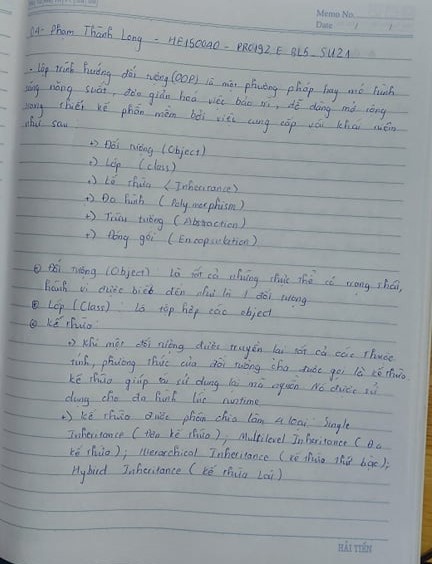 Memo No.
Date / /
04- Phạm Thành Long - HE150040 - PRO192 E BL5 SU21
- Lập trình hướng đối tượng (OOP) là một phương pháp hay mô hình
tăng năng suất, đơn giản hoá việc bảo trì, dễ dàng mở rộng
trong thiết kế phần mềm bởi việc cung cấp vài khái niệm
như sau
+) Đối tượng (Object)
+) Lớp (class)
+) Kế thừa (Inheritance)
+) Đa hình (Polymorphism)
+) Trừu tượng (Abstraction)
+) Đóng gói (Encapsulation)
Đối tượng (Object): Là tất cả những thực thể có trạng thái,
hành vi được biết đến như là 1 đối tượng
Lớp (Class): là tập hợp các object
Kế thừa:
+) Khi một đối tượng được truyền lại tất cả các thuộc
tính, phương thức của đối tượng cha được gọi là kế thừa.
Kế thừa giúp tái sử dụng lại mã nguồn. Nó được sử
dụng cho đa hình lúc runtime.
+) kế thừa được phân chia làm 4 loại: Single
Inheritance (Đơn kế thừa), Multilevel Inheritance (Đa
kế thừa); Hierarchical Inheritance (kế thừa thứ bậc);
Hybird Inheritance (kế thừa Lai)
HẢI TIẾN